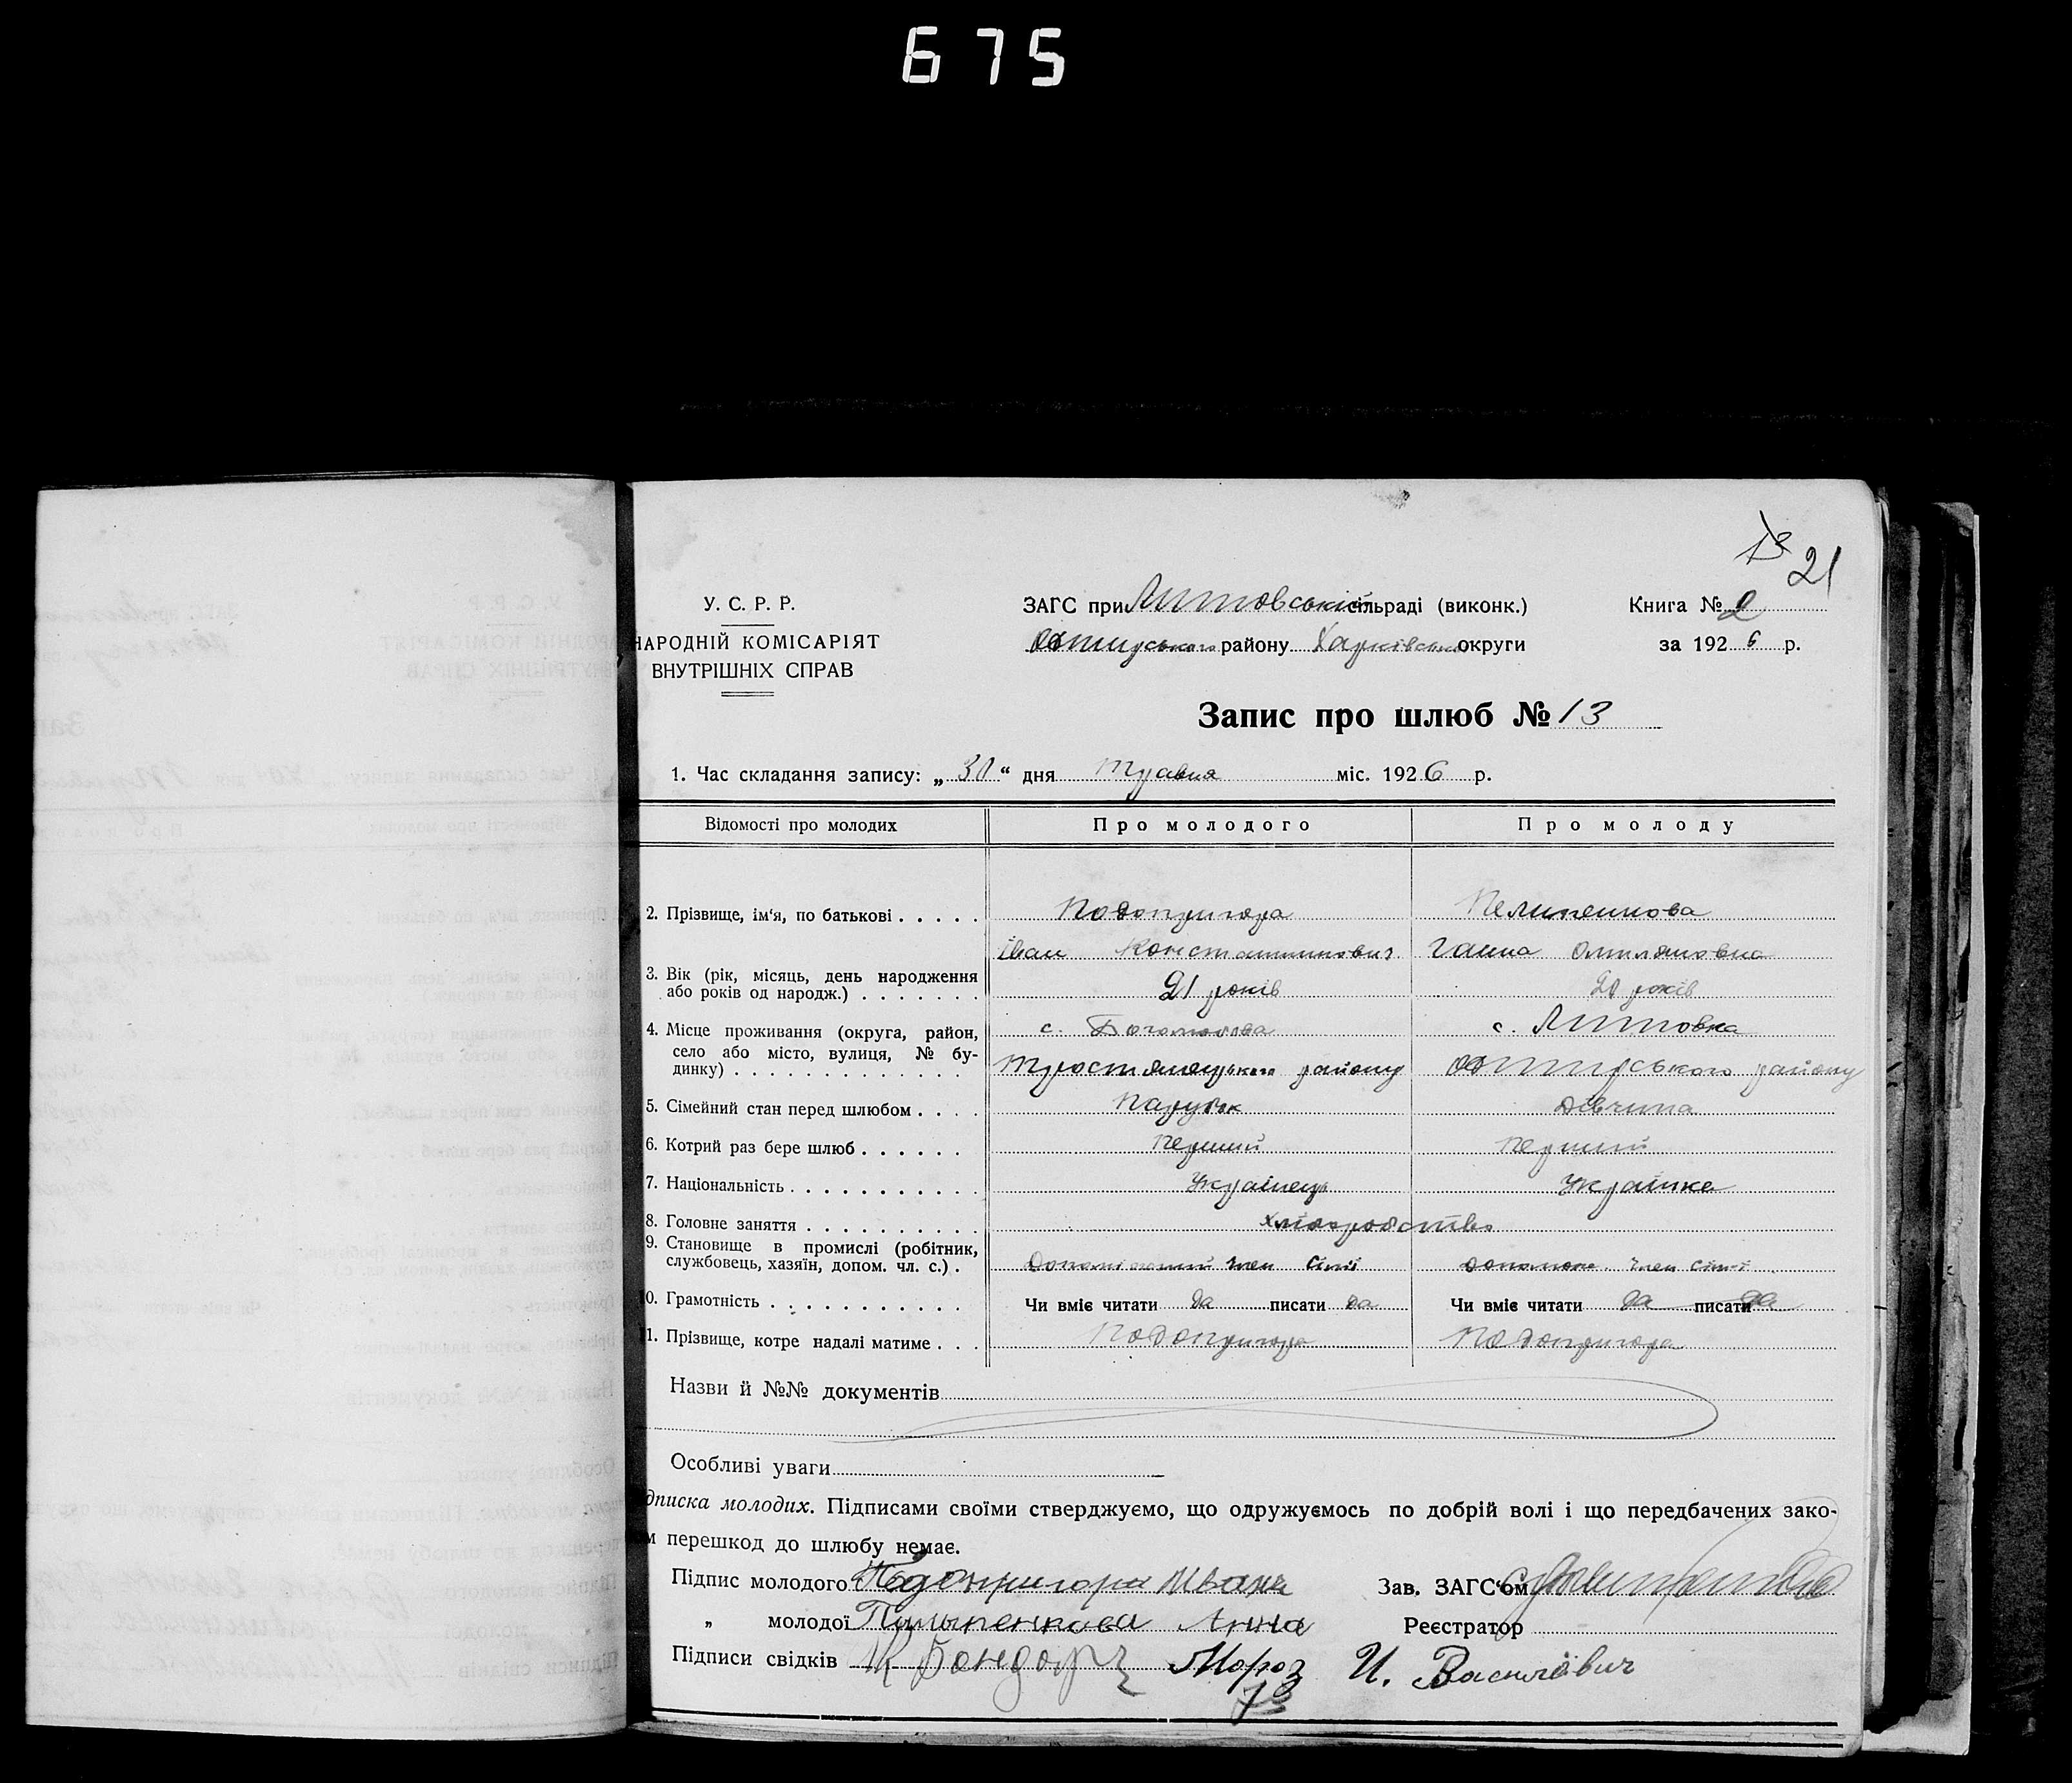 675
21
У. С. Р. Р.
НАРОДНІЙ КОМІСАРІЯТ
ВНУТРІШНІХ СПРАВ
ЗАГС при Литовській сільраді (виконк.)
району Харківської округи
Книга № 2
за 1926 р.
Запис про шлюб № 13
1. Час складання запису: „30“ дня травня міс. 1926 р.
Відомості про молодих Про молодого Про молоду
2. Прізвище, ім'я, по батькові Подопригора Пелипенкова
Іван Константинович Ганна
3. Вік (рік, місяць, день народження
або років од народж.) 21 років 20 років
4. Місце проживання (округа, район, с. с. Литовка
село або місто, вулиця, № бу-
динку) Тростянецького району району
5. Сімейний стан перед шлюбом Парубок Дівчина
6. Котрий раз бере шлюб Перший Перший
7. Національність Українець Українка
8. Головне заняття
9. Становище в промислі (робітник,
службовець, хазяїн, допом. чл. с.) член сімї член сімї
10. Грамотність Чи вміє читати да писати да Чи вміє читати да писати да
11. Прізвище, котре надалі матиме Подопригора Подопригора
Назви й №№ документів
Особливі уваги
дписка молодих. Підписами своїми стверджуємо, що одружуємось по добрій волі і що передбачених зако-
м перешкод до шлюбу немає.
Підпис молодого Подопригора Иванъ Зав. ЗАГС'ом
„ молодої Пилыпенкова Анна Реєстратор
Підписи свідків Бондарь Мороз И. Василевич